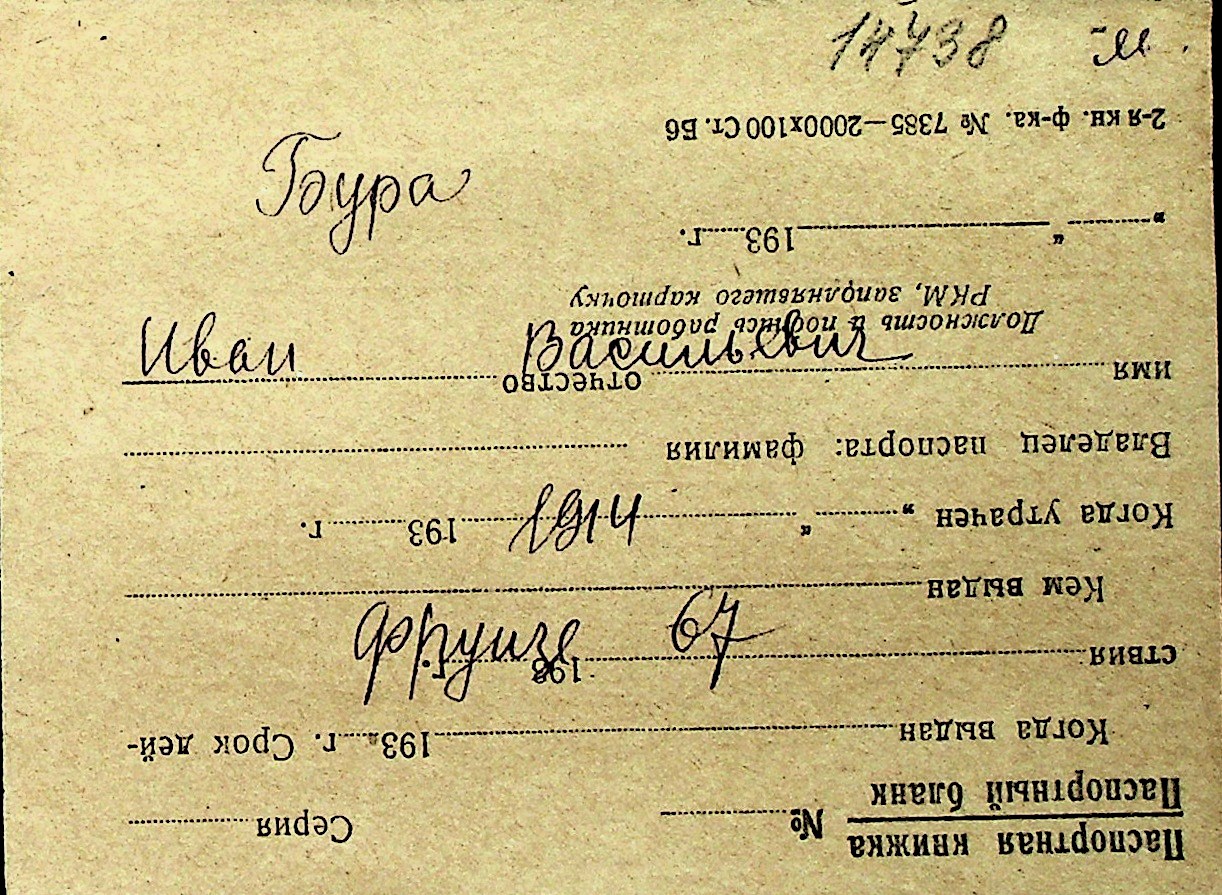 14738 м
Бура
Иван Васильевич
1914
Фрунзе 67
Паспортная книжка
Паспортный бланк № Серия
Когда выдан 193 г. Срок дей-
ствия 193 г.
Кем выдан
Когда утрачен „ “ 193 г.
Владелец паспорта: фамилия
имя отчество
Должность и подпись работника
РКМ, заполнявшего карточку
„ “ 193 г.
2-я кн. ф-ка. № 7385—2000х100 Ст. Б6